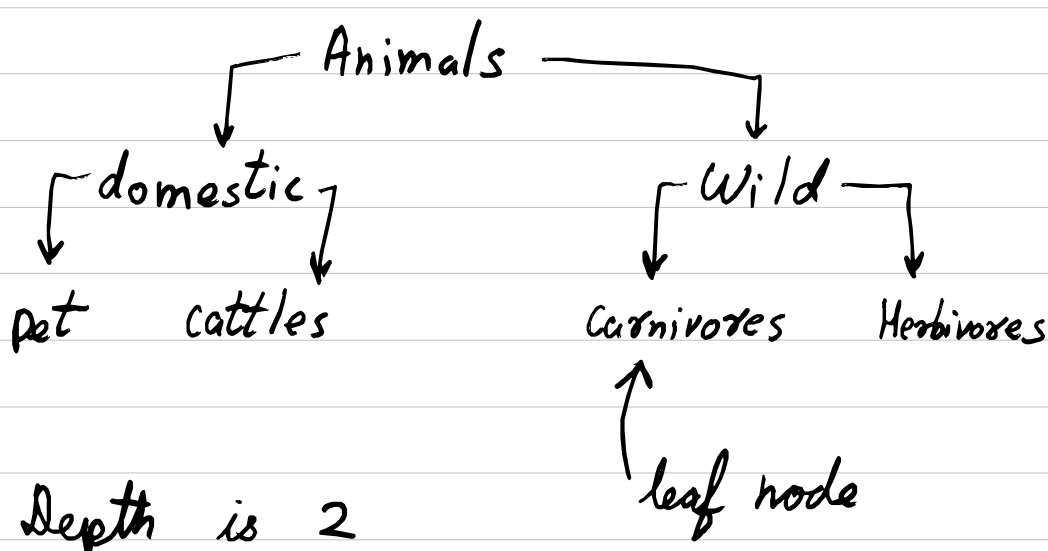 Animals
domestic Wild
pet cattles Carnivores Herbivores
leaf node
Depth is 2